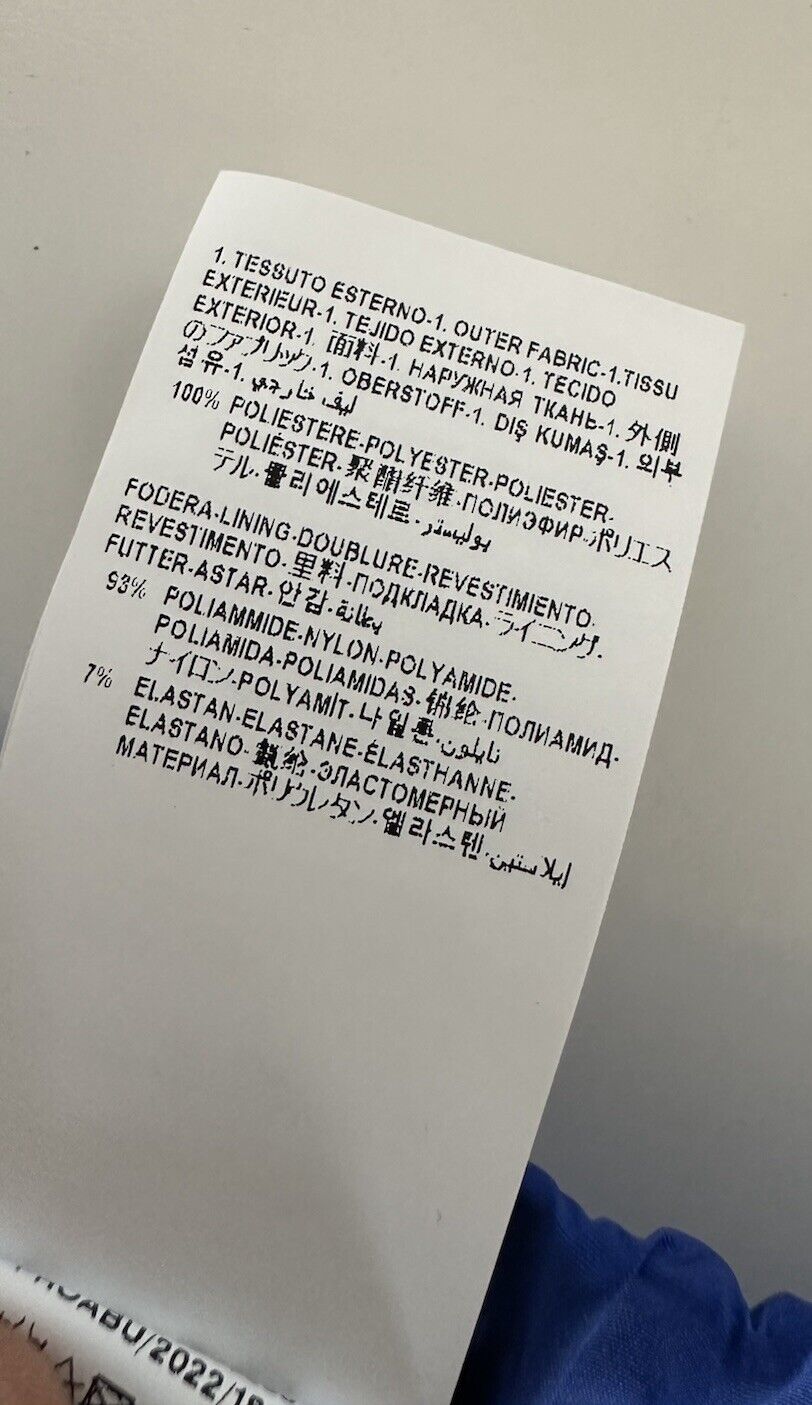 1. TESSUTO ESTERNO-1. OUTER FABRIC-1.TISSU
EXTERIEUR-1. TEJIDO EXTERNO-1. TECIDO
EXTERIOR-1. 面料-1. НАРУЖНАЯ ТКАНЬ-1. 外側
のファブリック-1. OBERSTOFF-1. DIŞ KUMAŞ-1. 외부
섬유-1. ليف خارجي
100% POLIESTERE-POLYESTER-POLIESTER-
POLIÉSTER-聚酯纤维-ПОЛИЭФИР-ポリエス
テル-폴리에스테르-بوليستر
FODERA-LINING-DOUBLURE-REVESTIMIENTO-
REVESTIMENTO-里料-ПОДКЛАДКА-ライニング-
FUTTER-ASTAR-안감-بطانة
93% POLIAMMIDE-NYLON-POLYAMIDE-
POLIAMIDA-POLIAMIDAS-锦纶-ПОЛИАМИД-
ナイロン-POLYAMİT-나일론-نايلون
7% ELASTAN-ELASTANE-ÉLASTHANNE-
ELASTANO-氨纶-ЭЛАСТОМЕРНЫЙ
МАТЕРИАЛ-ポリウレタン-엘라스텐-إيلاستين
/2022/